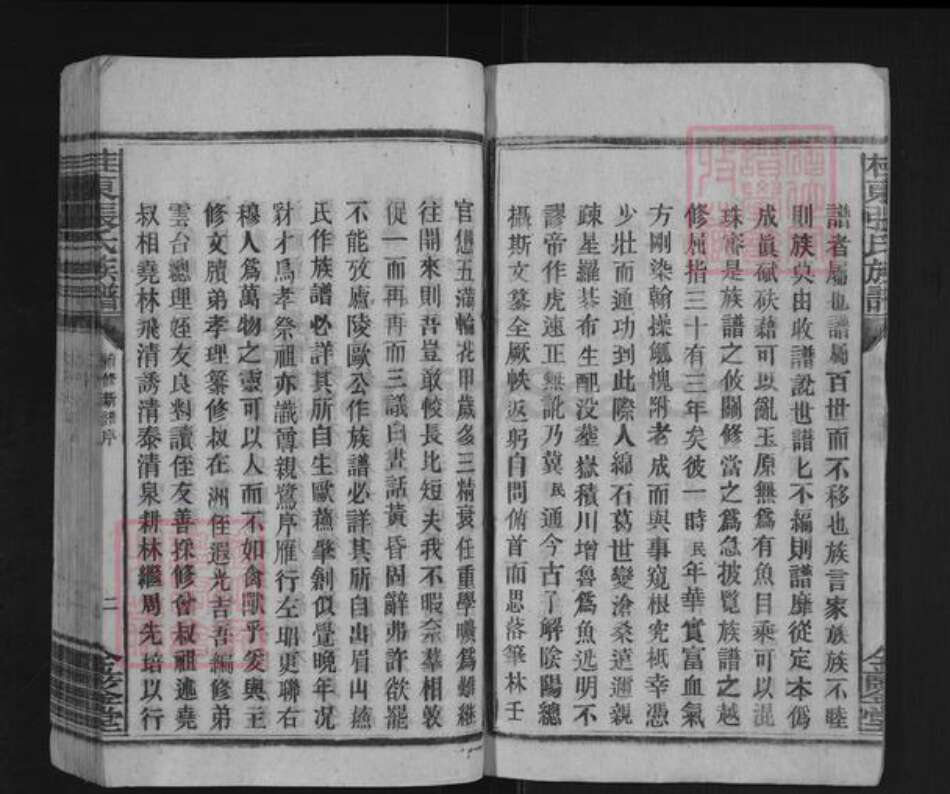 桂東張氏族譜
譜者屬也譜屬百世而不移也族言家族族不睦
則族奐由收譜訛也譜匕不編則譜靡從定本僞
成眞碔砆藉可以亂玉原無爲有魚目乘可以混
珠審是族譜之攸關修當之爲急披覧族譜之越
修楨指三十有三年矣彼一時民年華實富血氣
方剛染翰操觚愧附老成而與事窺根究柢幸憑
少壯而通功到此際人綿石葛世變滄桑遠邇親
疎星羅棊布生配没塟嶽積川增魯爲魚迯明不
謬帝作虎速正無訛乃冀民通今古了解陰陽總
攝斯文纂全厥帙返躬自問俯首而思落筆林壬
金陵堂
官僭五瀟輪花甲歲多三精衰任重學曦爲難継
往開來則吾豈敢較長比短夫我不暇奈羣相敦
促一而再再而三議白晝話黃昏固辭弗許欲罷
不能攷廬陵歐公作族譜必詳其所自出眉山蘇
氏作族譜必詳其所自生歐蘇肇創似覺晚年况
豺才鳥孝祭祖亦識尊親鷺序雁行左昭更聯右
穆人爲萬物之靈可以人而不如禽獸乎爰與主
修文牘弟孝理纂修叔在洲侄遐光吉吾編修弟
雲台總理姪友良對讀侄友善採修會叔祖述堯
叔相堯林飛清誘清泰清泉耕林繼周先培以行
桂東張氏族譜
二
金陵堂